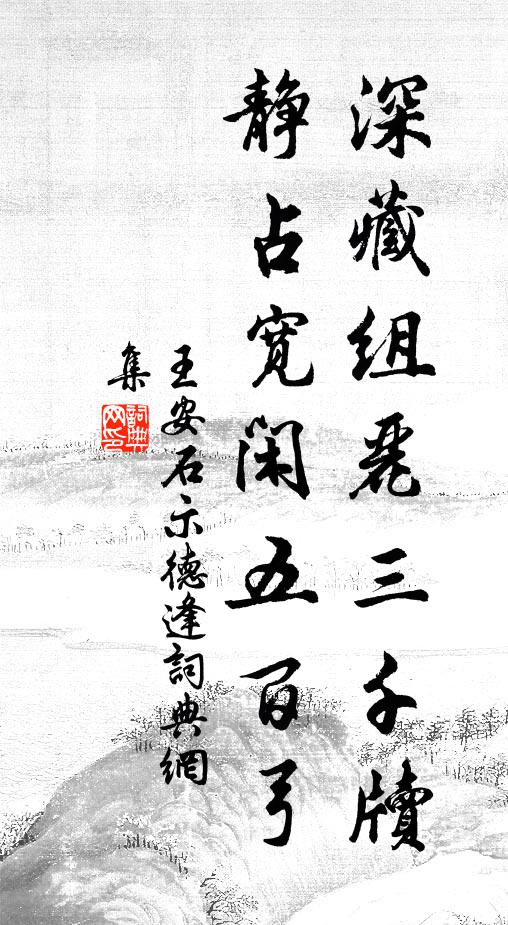 深藏組麗三千牘
靜占寬閑五百弓
王安石示德逢詞典網
集
詞典网印